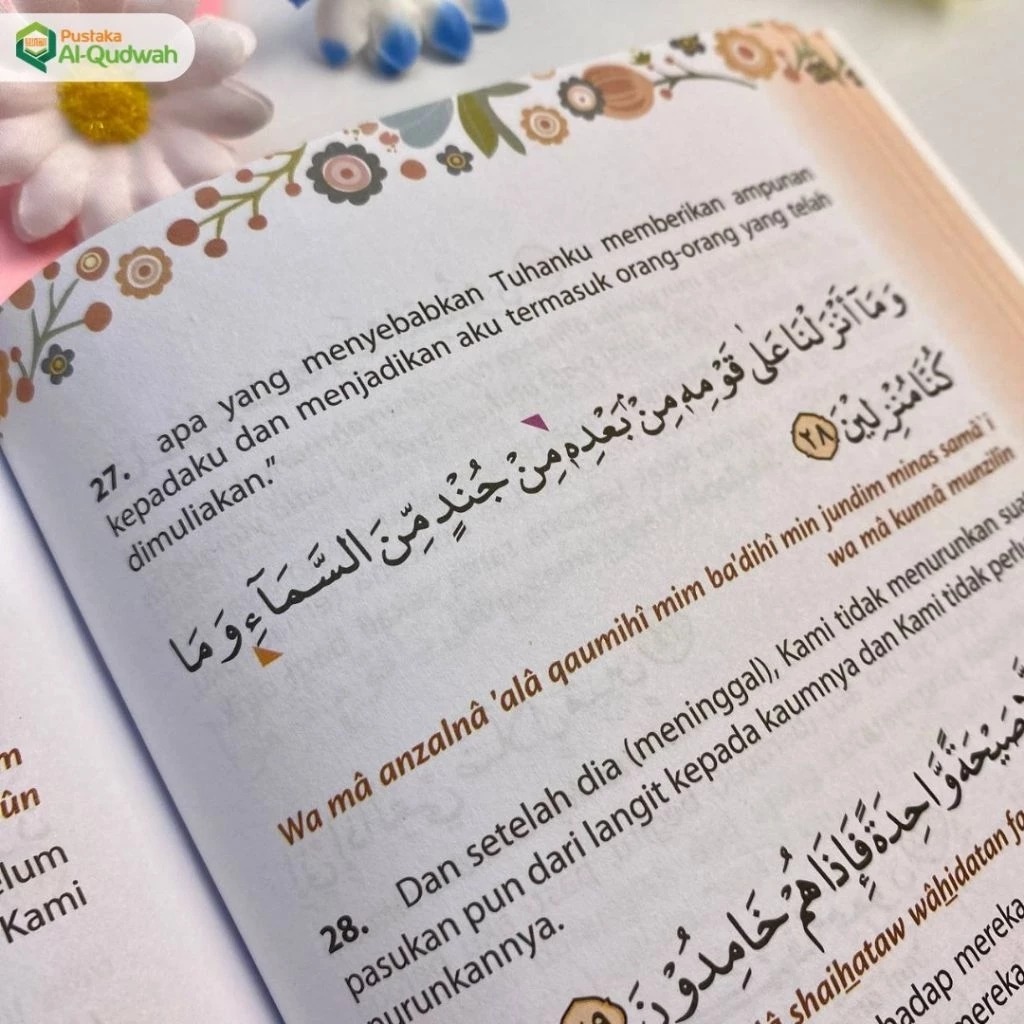 Pustaka
Al-Qudwah
27. apa yang menyebabkan Tuhanku memberikan ampunan
kepadaku dan menjadikan aku termasuk orang-orang yang telah
dimuliakan."
وَمَآ اَنْزَلْنَا عَلٰى قَوْمِهٖ مِنْۢ بَعْدِهٖ مِنْ جُنْدٍ مِّنَ السَّمَاۤءِ وَمَا
كُنَّا مُنْزِلِيْنَ ٢٨
Wa mâ anzalnâ 'alâ qaumihî mim ba'dihî min jundim minas samâ'i
wa mâ kunnâ munzilîn
28. Dan setelah dia (meninggal), Kami tidak menurunkan
pasukan pun dari langit kepada kaumnya dan Kami tidak
صَيْحَةً وَّاحِدَةً فَاِذَا هُمْ خَامِدُوْنَ ٢٩
shaihataw wâhidatan
mereka
ûn
Kami